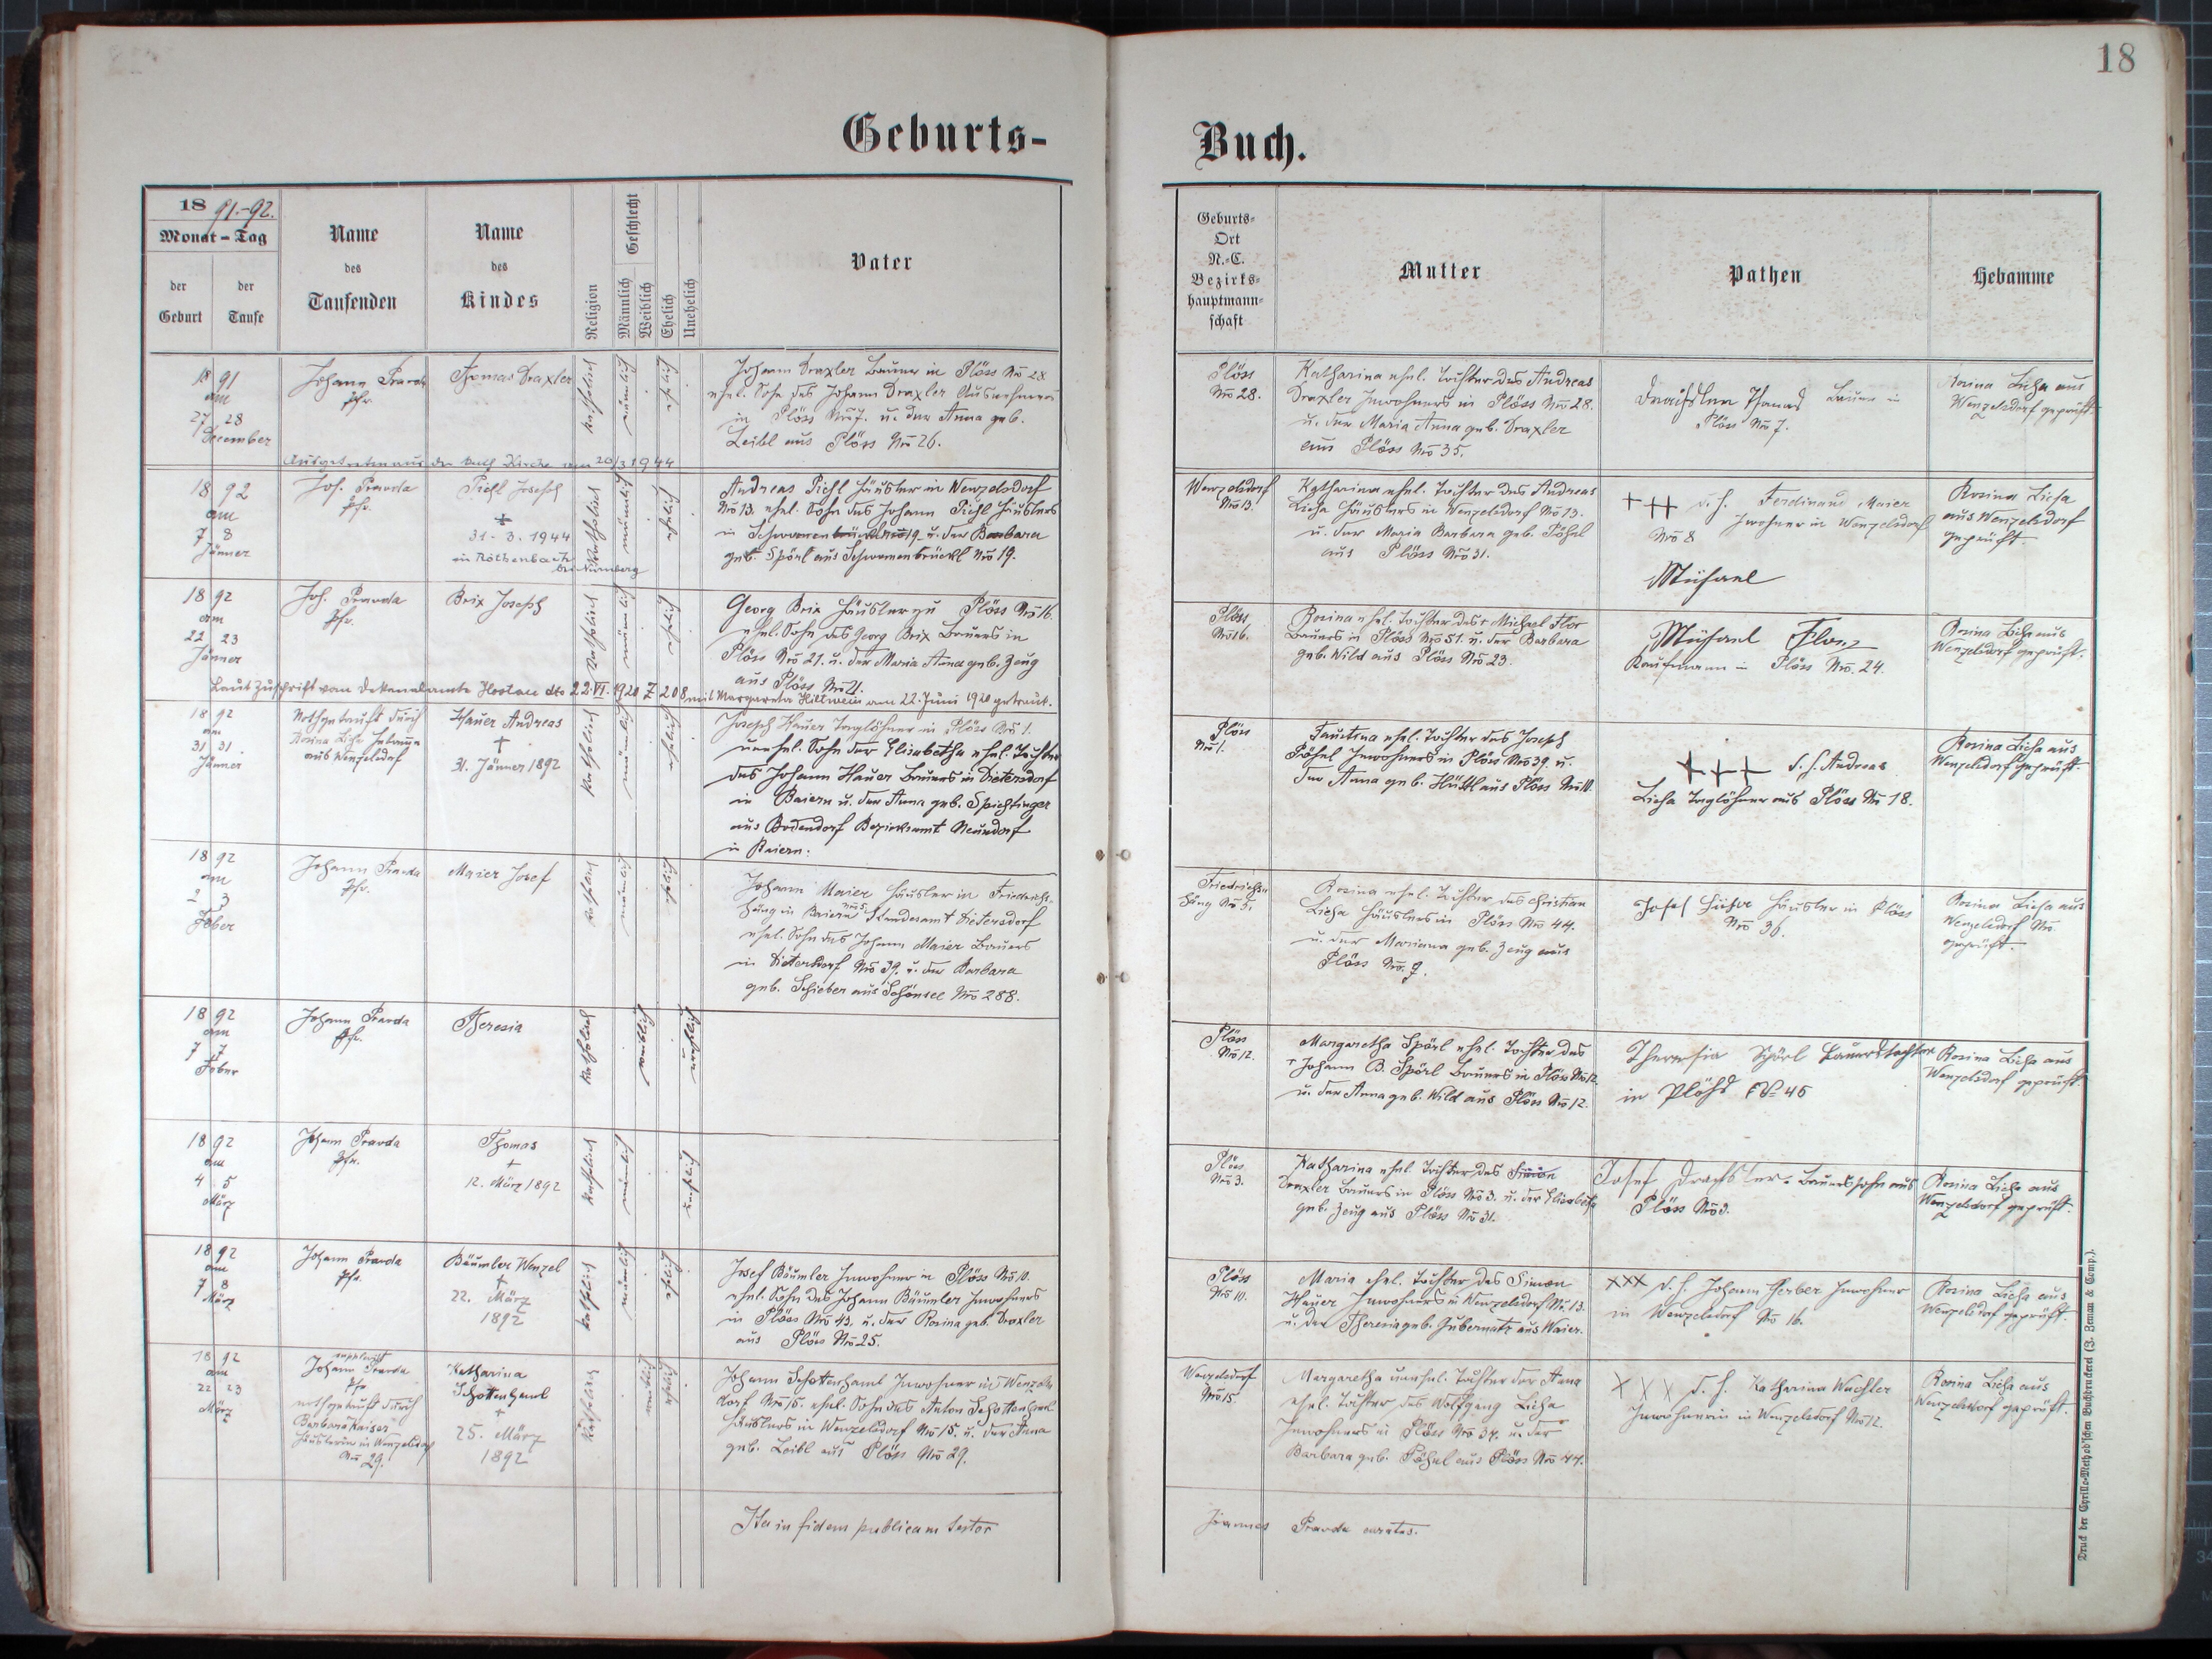 18
Geburts-
Buch.
18 91.-92.
Monat - Tag
der Geburt
der Taufe
Name des Taufenden
Name des Kindes
Religion
Geschlecht
Männlich
Weiblich
Ehelich
Unehelich
Vater
Geburts-
Ort
N.-C.
Bezirks-
hauptmann-
schaft
Mutter
Pathen
Hebamme
18 91
am
27 28
December
Johann Pravda
Pfr.
Thomas Draxler
katholisch
männlich
ehelich
Johann Draxler Bauer in Plöss No 28
ehel. Sohn des Johann Draxler Ausnehmers
in Plöss No 7. u. der Anna geb.
Leibl aus Plöss No 26.
Plöss
No 28.
Katharina ehel. Tochter des Andreas
Draxler Inwohners in Plöss No 28.
u. der Maria Anna geb. Draxler
aus Plöss No 35.
Thomas Bauer in
Plöss No 7.
Rosina Licha aus
Wenzelsdorf geprüft.
Ausgetreten aus der kath. Kirche am 20/3 1944
18 92
am
7 8
Jänner
Joh. Pravda
Pfr.
Pichl Joseph
31. 3. 1944
in Röthenbach
bei Nürnberg
katholisch
männlich
ehelich
Andreas Pichl Häusler in Wenzelsdorf
No 13. ehel. Sohn des Johann Pichl Häuslers
in Schwanenbrückl No 19. u. der Barbara
geb. Spörl aus Schwanenbrückl No 19.
Wenzelsdorf
No 13.
Katharina ehel. Tochter des Andreas
Licha Häuslers in Wenzelsdorf No 13.
u. der Maria Barbara geb. Pöhsl
aus Plöss No 31.
+++ d. h. Ferdinand Maier
Inwohner in Wenzelsdorf
No 8
Rosina Licha
aus Wenzelsdorf
geprüft.
Michael
18 92
am
22 23
Jänner
Joh. Pravda
Pfr.
Brix Joseph
katholisch
männlich
ehelich
Georg Brix Häusler zu Plöss No 16.
ehel. Sohn des Georg Brix Bauers in
Plöss No 21. u. der Maria Anna geb. Zeug
aus Plöss No 21.
Plöss
No 16.
Rosina ehel. Tochter des Michael Flor
Bauers in Plöss No 51. u. der Barbara
geb. Wild aus Plöss No 23.
Michael Flor
Kaufmann in Plöss No. 24.
Rosina Licha aus
Wenzelsdorf geprüft.
Laut Zuschrift vom Dekanalamte Hostau dto 22. VI. 1920 Z 208 mit Margareta am 22. Juni 1920 getraut.
18 92
am
31 31.
Jänner
Nothgetauft durch
Rosina Licha Hebamme
aus Wenzelsdorf
Hauer Andreas
+
31. Jänner 1892
katholisch
männlich
ehelich
Joseph Hauer Taglöhner in Plöss No 1.
unehel. Sohn der Elisabetha ehel. Tochter
des Johann Hauer Bauers in Dietersdorf
in Baiern u. der Anna geb. Spichtinger
aus Bodendorf Bezirksamt Neundorf
in Baiern.
Plöss
No 1.
Faustina ehel. Tochter des Joseph
Pöhsl Inwohners in Plöss No 39. u.
der Anna geb. Hüttl aus Plöss No 11.
+++ d. h. Andreas
Licha Taglöhner aus Plöss No 18.
Rosina Licha aus
Wenzelsdorf geprüft.
18 92
am
2 3
Feber
Johann Pravda
Pfr.
Maier Josef
katholisch
männlich
ehelich
Johann Maier Häusler in Friedrichs-
häng in Baiern No 5. Standesamt Dietersdorf
ehel. Sohn des Johann Maier Bauers
in Dietersdorf No 39. u. der Barbara
geb. Schieber aus Schönsee No 288.
Friedrichs-
häng No 5.
Rosina ehel. Tochter des Christian
Licha Häuslers in Plöss No 44.
u. der Mariana geb. Zeug aus
Plöss No. 9.
Josef Häusler in Plöss
No 36.
Rosina Licha aus
Wenzelsdorf No.
geprüft.
18 92
am
7 7
Feber
Johann Pravda
Pfr.
Theresia
katholisch
weiblich
unehelich
Plöss
No 12.
Margaretha Spörl ehel. Tochter des
+ Johann B. Spörl Bauers in Plöss No 12
u. der Anna geb. Wild aus Plöss No 12.
Theresia Spörl Bauerstochter
in Plöhs No 46
Rosina Licha aus
Wenzelsdorf geprüft.
18 92
am
4 5
März
Johann Pravda
Pfr.
Thomas
+
12. März 1892
katholisch
männlich
unehelich
Plöss
No 3.
Katharina ehel. Tochter des Simon
Draxler Bauers in Plöss No 3. u. der Elisabeth
geb. Zeug aus Plöss No 31.
Josef Drachsler Bauerssohn aus
Plöss No 3.
Rosina Licha aus
Wenzelsdorf geprüft.
18 92
am
7 8
März
Johann Pravda
Pfr.
Bäumler Wenzel
+
22. März
1892
katholisch
männlich
ehelich
Josef Bäumler Inwohner in Plöss No 10.
ehel. Sohn des Johann Bäumler Inwohners
in Plöss No 43. u. der Rosina geb. Draxler
aus Plöss No 25.
Plöss
No 10.
Maria ehel. Tochter des Simon
Hauer Inwohners in Wenzelsdorf No. 13.
u. der Theresia geb. Gubernatz aus Waier.
xxx d. h. Johann Gerber Inwohner
in Wenzelsdorf No 16.
Rosina Licha aus
Wenzelsdorf geprüft.
18 92
am
22 23
März
Johann Pravda
Pfr.
nothgetauft durch
Barbara Kaiser
Häuslerin in Wenzelsdorf
No 29.
Katharina
Schottenhaml
+
25. März
1892
katholisch
weiblich
ehelich
Johann Schottenhaml Inwohner in Wenzels-
dorf No 15. ehel. Sohn des Anton Schottenhaml
Häuslers in Wenzelsdorf No 15. u. der Anna
geb. Leibl aus Plöss No 29.
Wenzelsdorf
No 15.
Margaretha unehel. Tochter der Anna
ehel. Tochter des Wolfgang Licha
Inwohners in Plöss No 37. u. der
Barbara geb. Pöhsl aus Plöss No 47.
XXX d. h. Katharina Wachter
Inwohnerin in Wenzelsdorf No 12.
Rosina Licha aus
Wenzelsdorf geprüft.
Ita in fidem publicam testor
Joannes Pravda curatus.
Druck der Cyrillo-Method'schen Buchdruckerei (J. Zeman & Comp.).